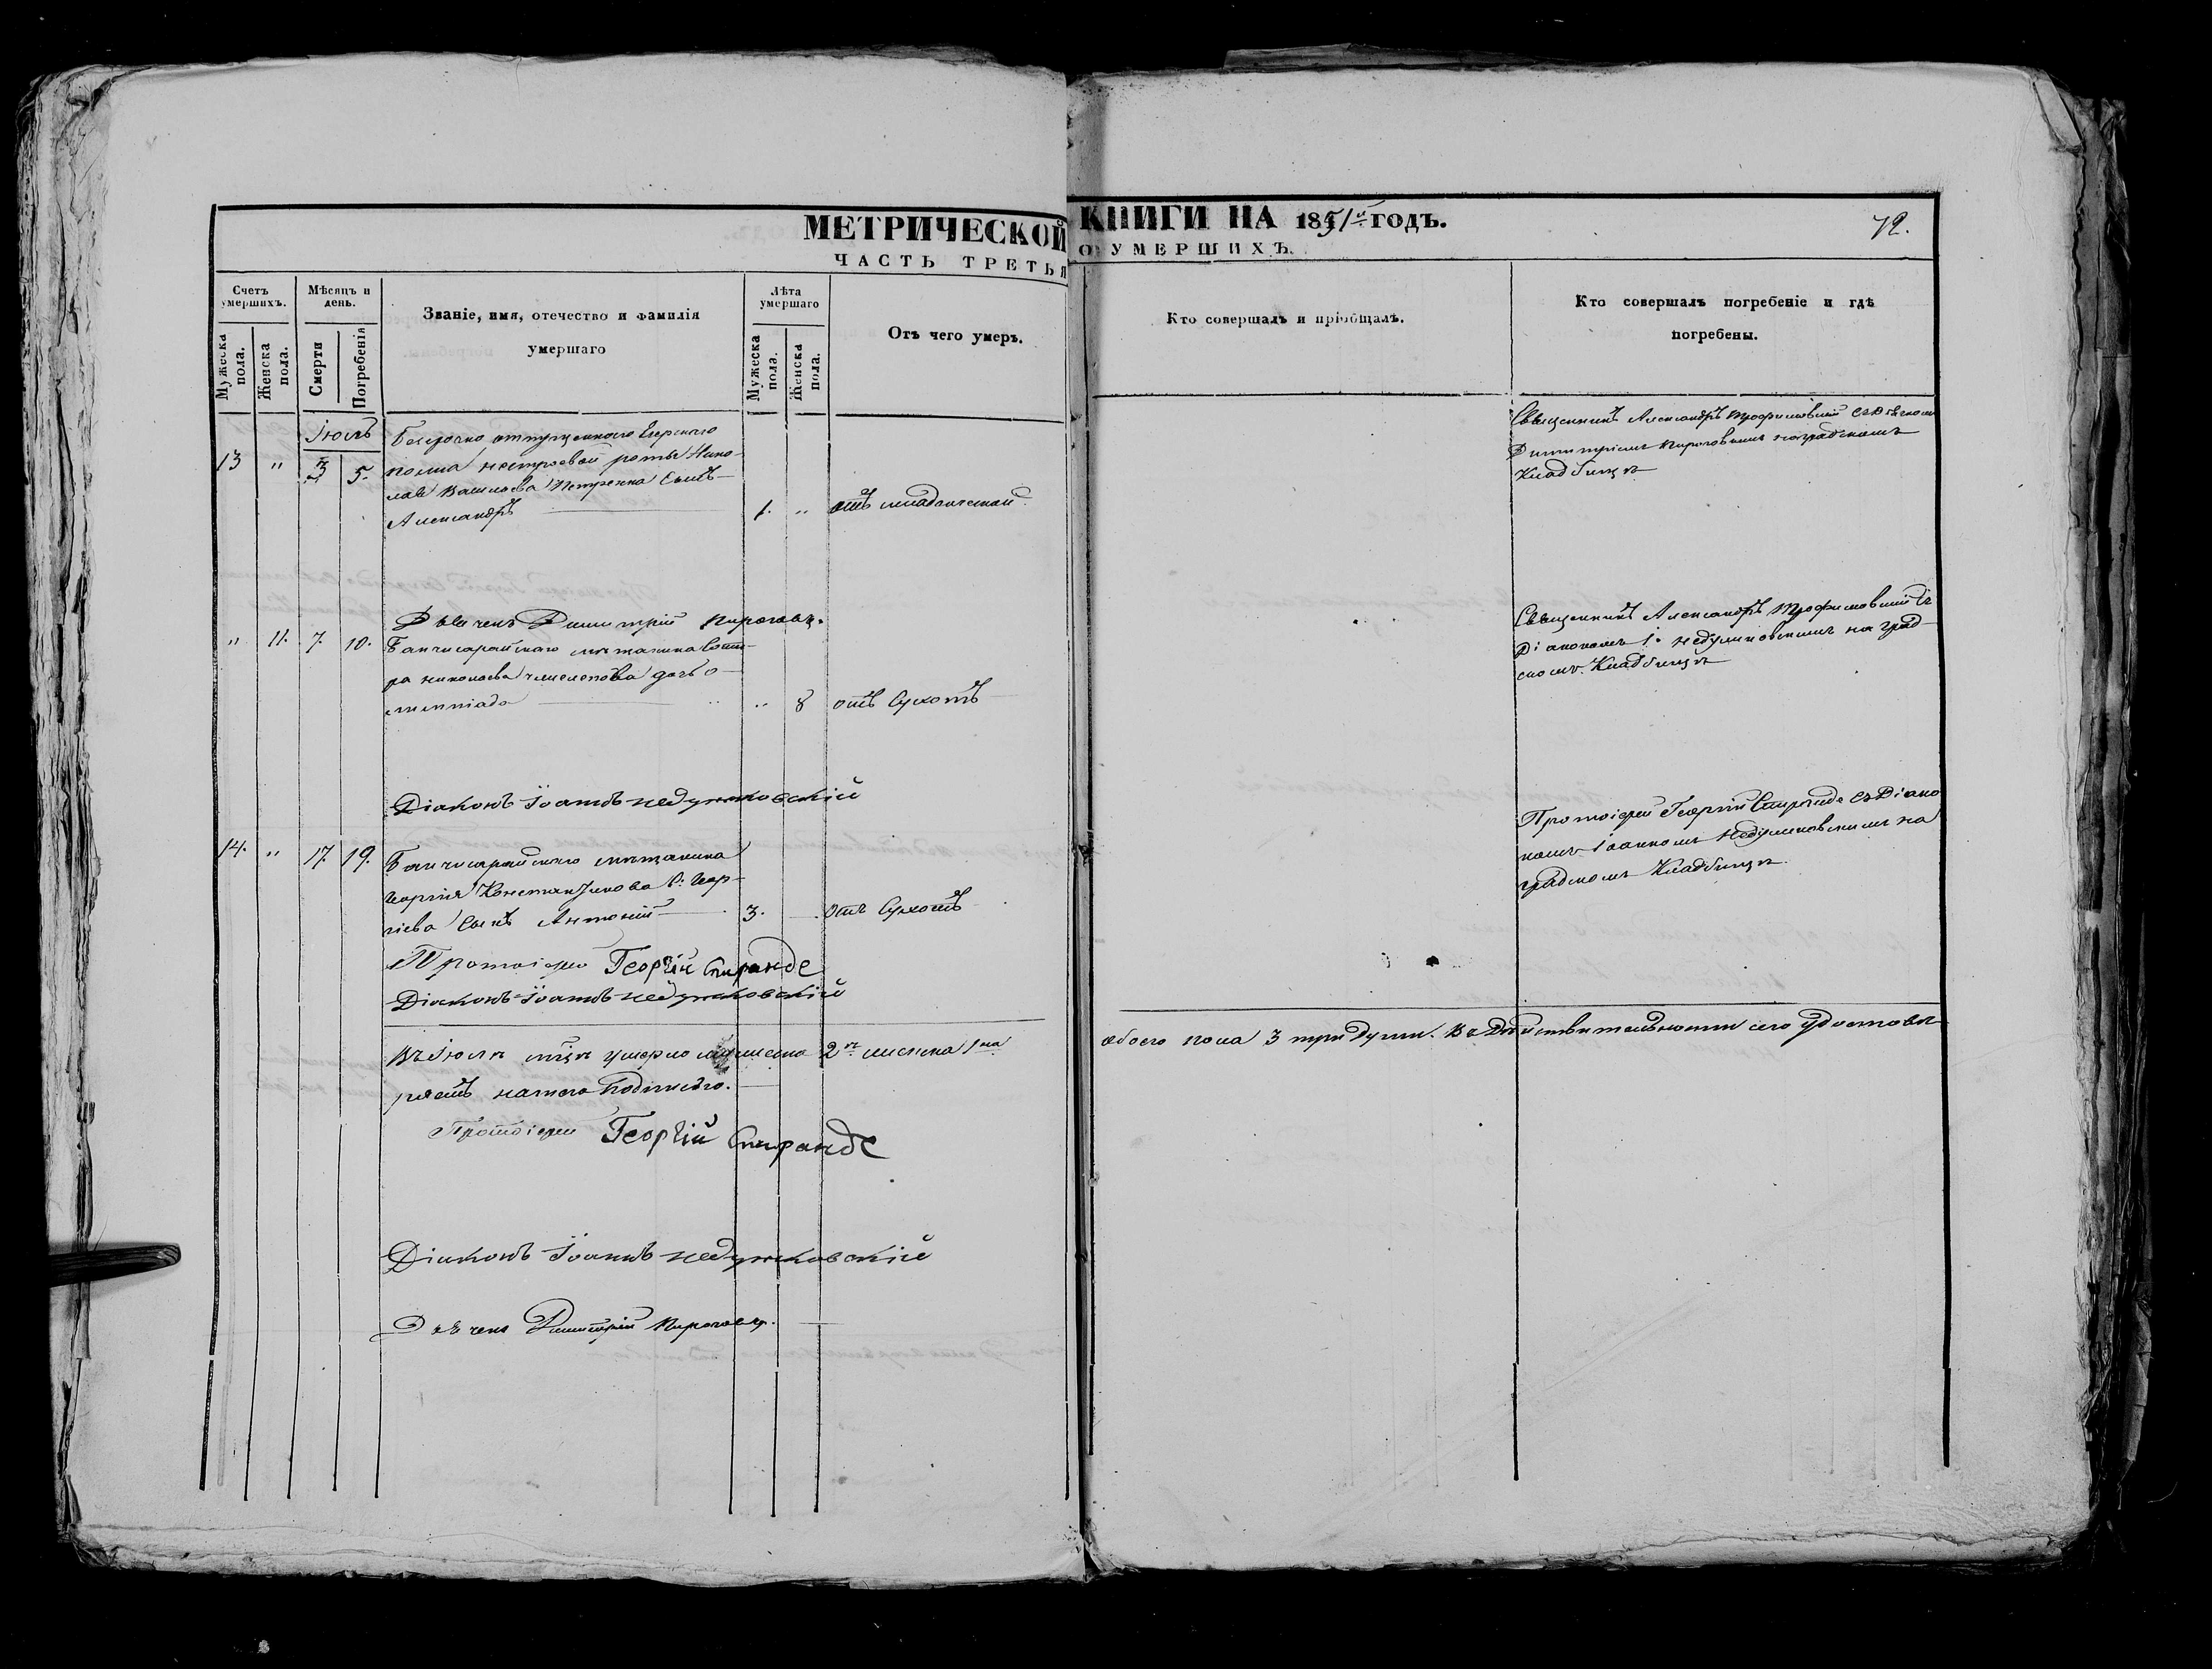 МЕТРИЧЕСКОЙ КНИГИ НА 1851й ГОДЪ.
72.
ЧАСТЬ ТРЕТЬЯ О УМЕРШИХЪ.
Счетъ умершихъ.
Мужеска пола.
Женска пола.
Мѣсяцъ и день.
Смерти
Погребенія
Званіе, имя, отечество и фамилія
умершаго
Лѣта умершаго
Мужеска пола.
Женска пола.
Отъ чего умеръ.
Кто совершалъ и пріобщалъ.
Кто совершалъ погребеніе и гдѣ
погребены.
Іюль
13 " 3 5.
Безсрочно отпущенного Егерского
полка нестроевой роты Нико-
лая Васильева Петренка сынъ
Александръ 1. " отъ младенческой
Священникъ Александръ Трофимовский съ Дьячкомъ
Димитріемъ Пироговымъ на градскомъ
Кладбищѣ
Дьячекъ Димитрій
" 11. 7. 10.
Бахчисарайскаго мѣщанина
Николаева дочь О-
лимпіада " 8 отъ Сухотъ
Священникъ Александръ Трофимовский съ
Діакономъ І. на град-
скомъ Кладбищѣ
Діаконъ Іоаннъ
14. " 17. 19.
Бахчисарайскаго мѣщанина
Георгія Константинова
гіева сынъ Антоній 3. отъ Сухотъ
Протоіерей Георгій Спиранде съ Діако
номъ Іоанномъ на
градскомъ Кладбищѣ
Протоіерей Георгій Спиранде
Діаконъ Іоаннъ
Въ Іюлѣ мцѣ умерло мужеска 2е женска 1на обоего пола 3 три души. Въ дѣйствительности сего удостовѣ-
ряемъ нашего подписью.
Протоіерей Георгій Спиранде
Діаконъ Іоаннъ
Дьячекъ Димитрій